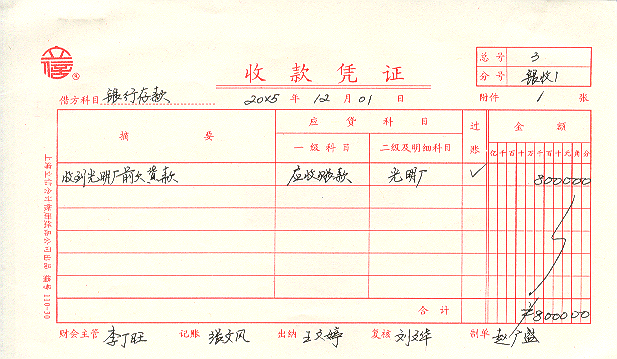 立信
收款凭证
总号 3
分号 银收1
附件 1 张
借方科目 银行存款
20X5 年 12 月 01 日
摘要
应贷科目
过账
金额
一级科目 二级及明细科目
亿 千 百 十 万 千 百 十 元 角 分
收到光明厂前欠货款 应收账款 光明厂 ✓ 800000
合计 ¥800000
财会主管 李丁旺 记账 张文风 出纳 王文婷 复核 刘文华 制单 赵广盛